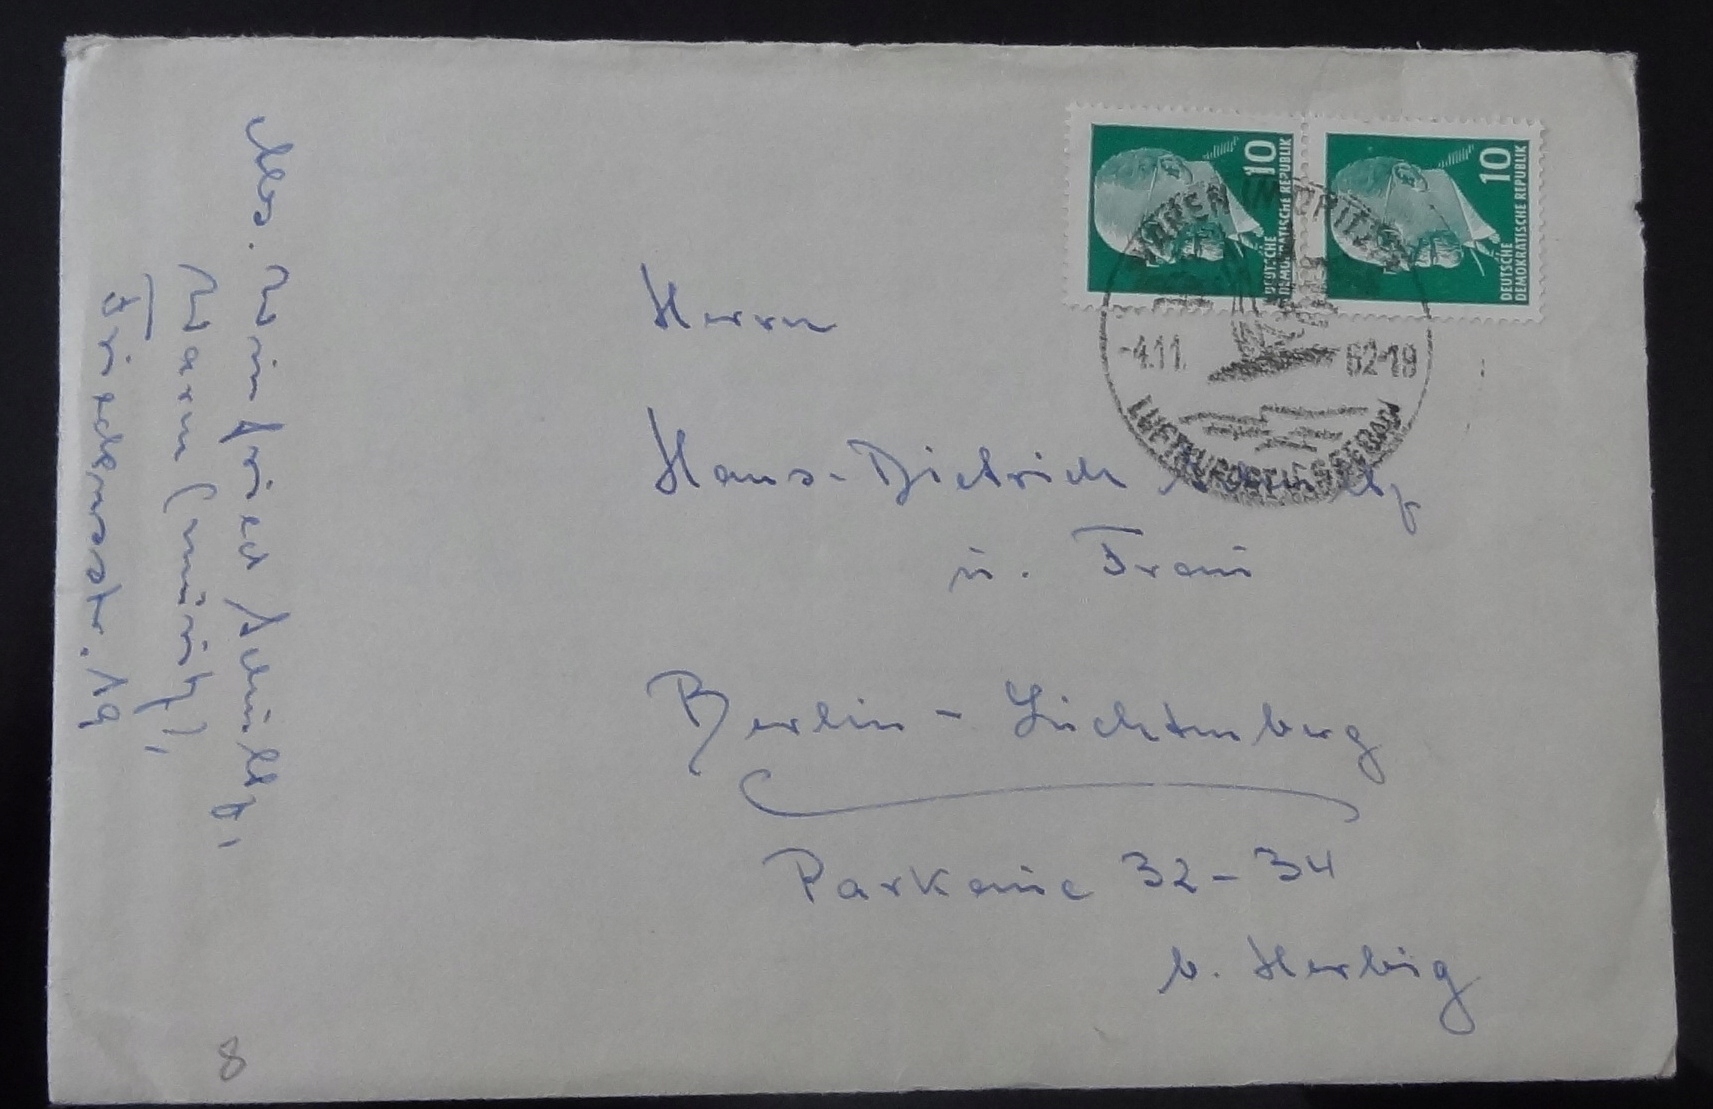 10
DEUTSCHE
DEMOKRATISCHE REPUBLIK
10
DEUTSCHE
DEMOKRATISCHE REPUBLIK
WAREN MÜRITZ
-4.11. 62-19
LUFTKURORT
Herrn
Hans-Dietrich Schultz
u. Frau
Berlin - Lichtenberg
Parkaue 32-34
b. Herbig
Abs. Winfried Schultz,
Waren (Müritz),
Friedensstr. 19
8